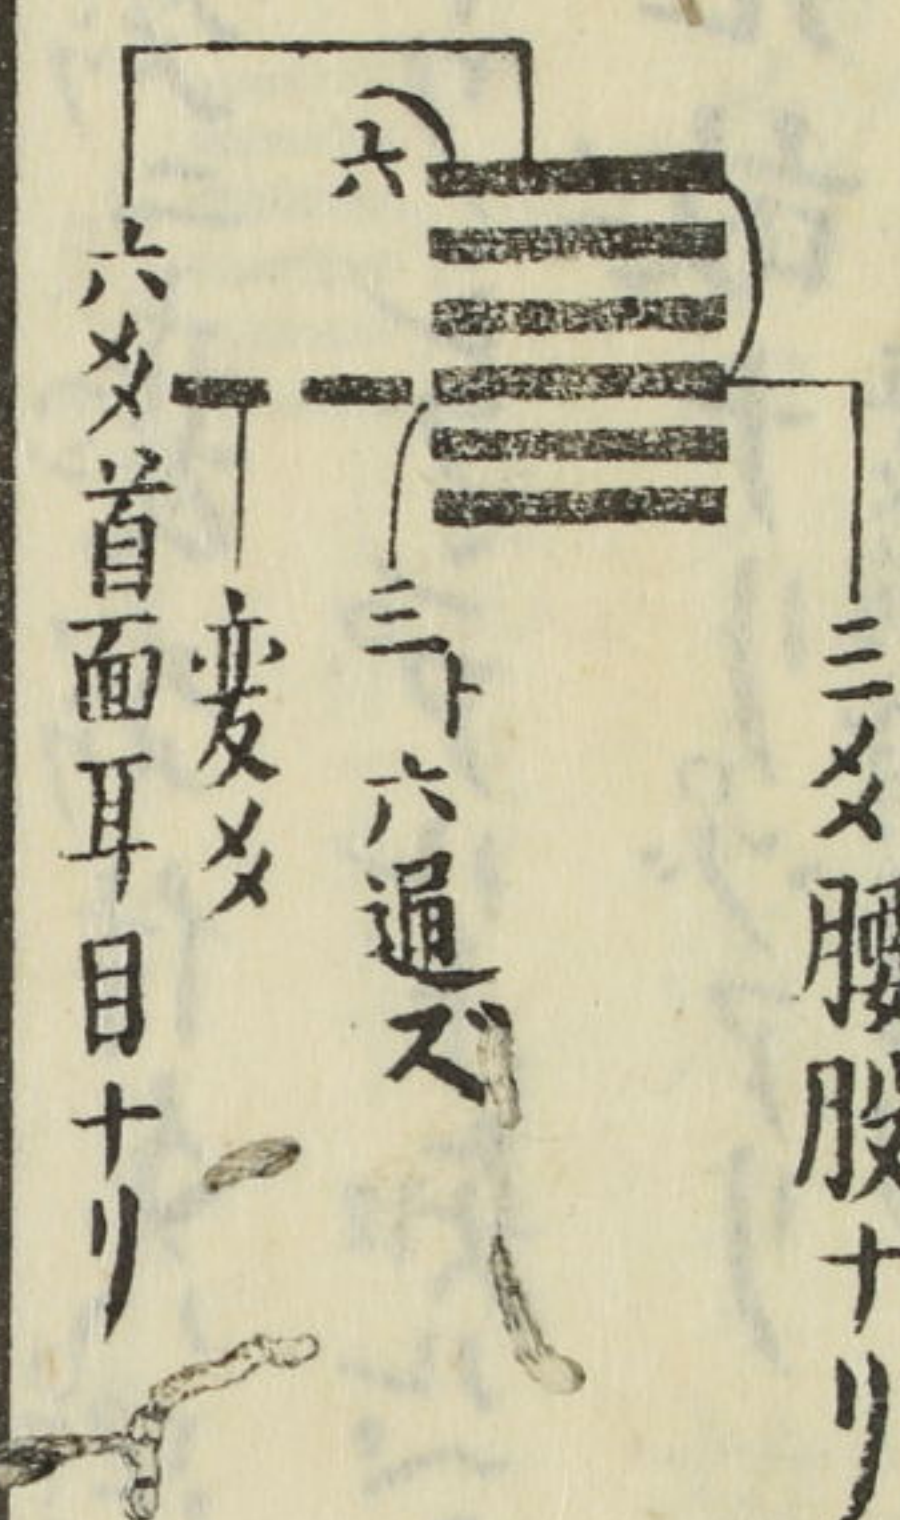 三爻腰股ナリ
六
三ト六通ズ
変爻
六爻首面耳目ナリ